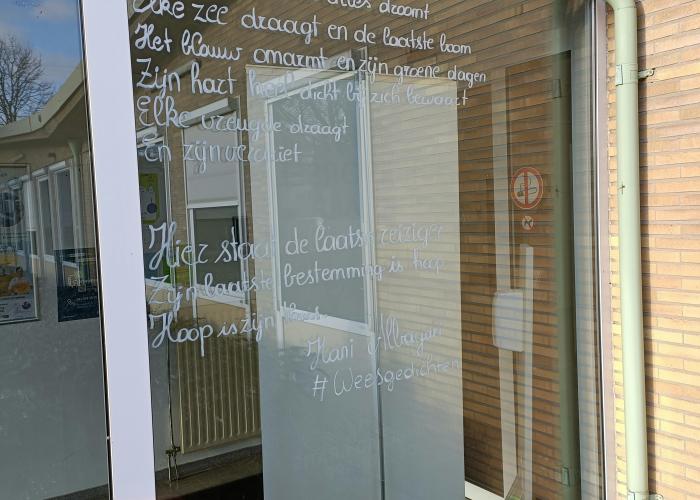 alles droomt
Elke zee draagt en de laatste boom
Het blauw omarmt en zijn groene dagen
Zijn hart heel dicht bij zich bewaart
Elke vreugde draagt
En zijn verdriet
Hier staat de laatste reiziger
Zijn laatste bestemming is hoop
Hoop is zijn
Hani
#Weesgedichten